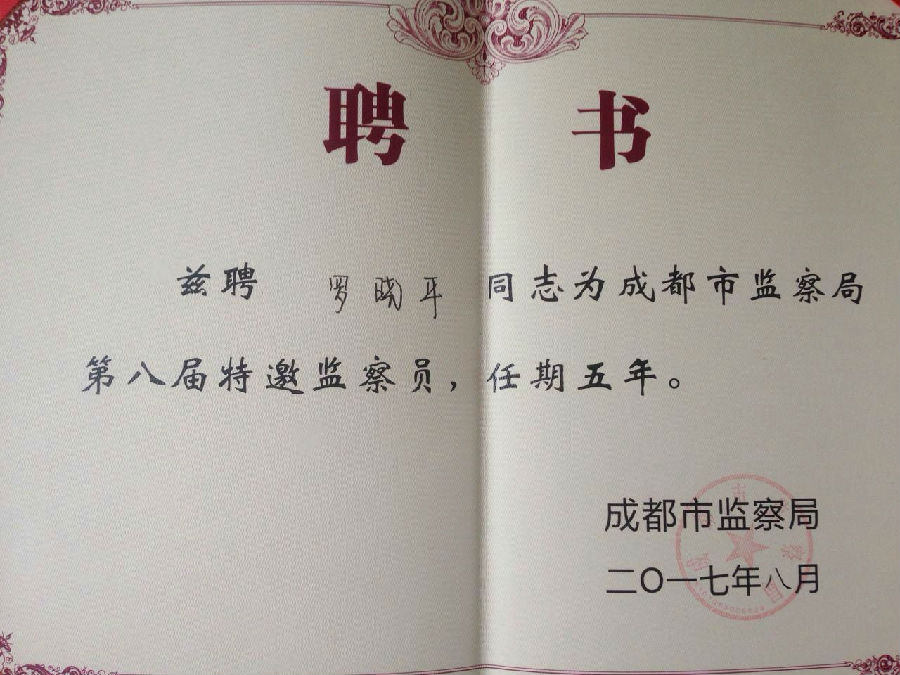 聘 书
兹聘 罗晓平 同志为成都市监察局
第八届特邀监察员，任期五年。
成都市监察局
二〇一七年八月